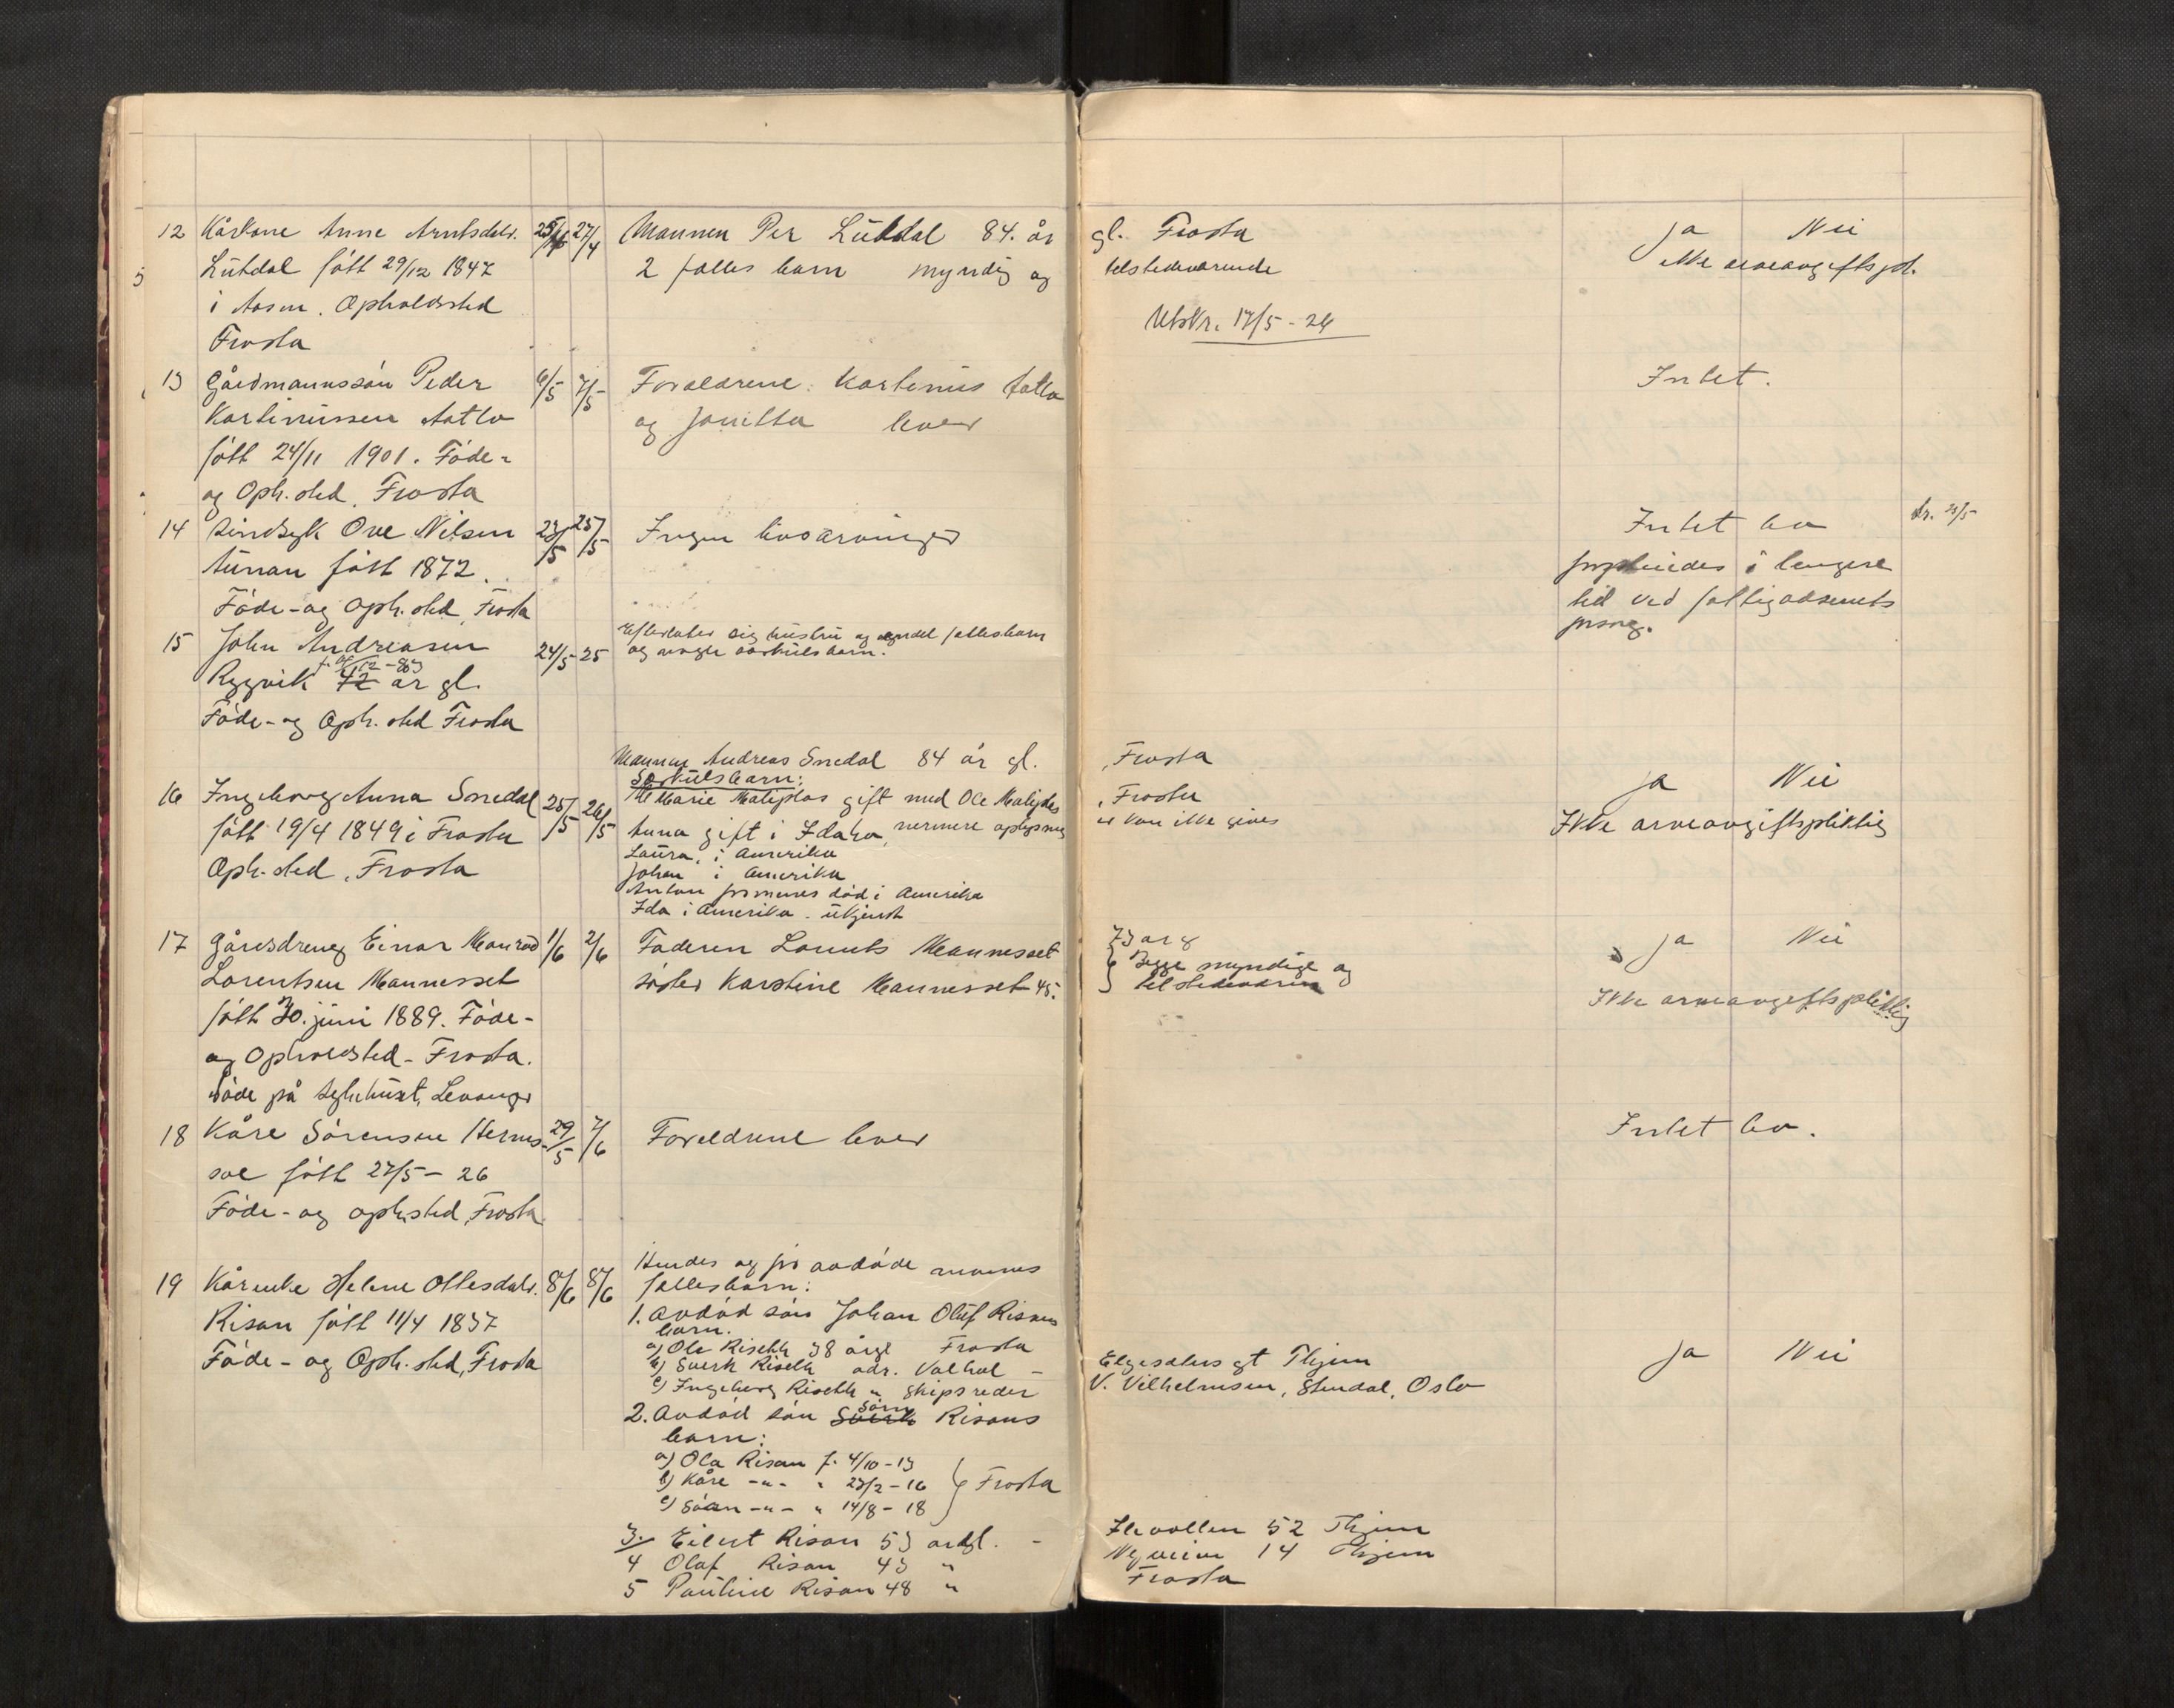 12 Kårkone Anne Arntsdatr. 25/4 27/4 Mannen Per Lutdal 84. år gl. Frosta Ja Nei
Lutdal född 29/12 1847 2 felles barn myndig og tilstedeværende ikke arveavgiftspl.
i Aasen. Opholdssted
Utskr. 17/5 - 26
Frosta
13 Gårdmannssøn Peder 6/5 7/5 Foreldrene: Kartinius Aatlo Intet.
Kartiniussen Aatlo og Jonetta lever
født 24/11 1901. Føde-
og Oph.sted. Frosta
14 Sindsyk Ove Nilsen 23/5 25/5 Ingen livsarvinger Intet bo kr. 25/5
født 1872. forpleiedes i lengere
Føde- og Oph.sted Frosta tid ved fattigvesenets
forsorg.
15 John Andreasen 24/5 25 Efterlater sig hustru og fellesbarn
og nogle særkulsbarn.
Rygvik 42 år gl.
Føde- og Oph. sted Frosta
Mannen Andreas Snedal 84 år gl. Frosta
Særkulsbarn:
16 Ingeborg Anna Snedal 25/5 26/5 Marie Matiplas gift med Ole Matiplas Frosta Ja Nei
født 19/4 1849 i Frosta Anna gift i Idaho, nermere oplysning kan ikke gives Ikke arveavgiftspliktig
Oph. sted, Frosta Laura, i Amerika
Johan i Amerika
Anton formenes død i Amerika
Ida i Amerika. ukjent
17 Gårdsdreng Einar Konrad 1/6 2/6 Faderen Lorents Mannesset 73 år g Ja Nei
Lorentsen Mannesset søster Karstine Mannesset 45. Begge myndige og
tilstedeværende
født 30. juni 1889. Føde- Ikke arveavgiftspliktig
og Opholdsted - Frosta.
Døde på sykehuset, Levanger
18 Kåre Sørensen Hernes- 29/5 7/6 Foreldrene lever Intet bo.
født 27/5 - 26
Føde- og oph.sted, Frosta
Hendes og før avdøde mannes
19 Kårenke Helene Ottesdatr. 8/6 8/6 fellesbarn:
Risan født 11/4 1837 1. Avdød søn Johan Oluf Risans
barn.
Føde- og Oph. sted, Frosta a) Ole Riseth 38 årgl Frosta Ja Nei
b) Sverk Riseth adr. Valhal - Elgesetersgt Thjem
c) Ingeborg Riseth " Skipsreder V. Vilhelmsen, Stendal, Oslo
2. Avdød søn Sverk Sørn Risans
barn:
a) Ola Risan f. 4/10 - 13
b) Kåre -"- " 23/2 - 16 Frosta
c) Søren -"- " 14/8 - 18
3. Eilert Risan 53 årgl. - Ilevollen 52 Thjem
4 Olaf Risan 43 " 14 Thjem
5 Pauline Risan 48 " Frosta